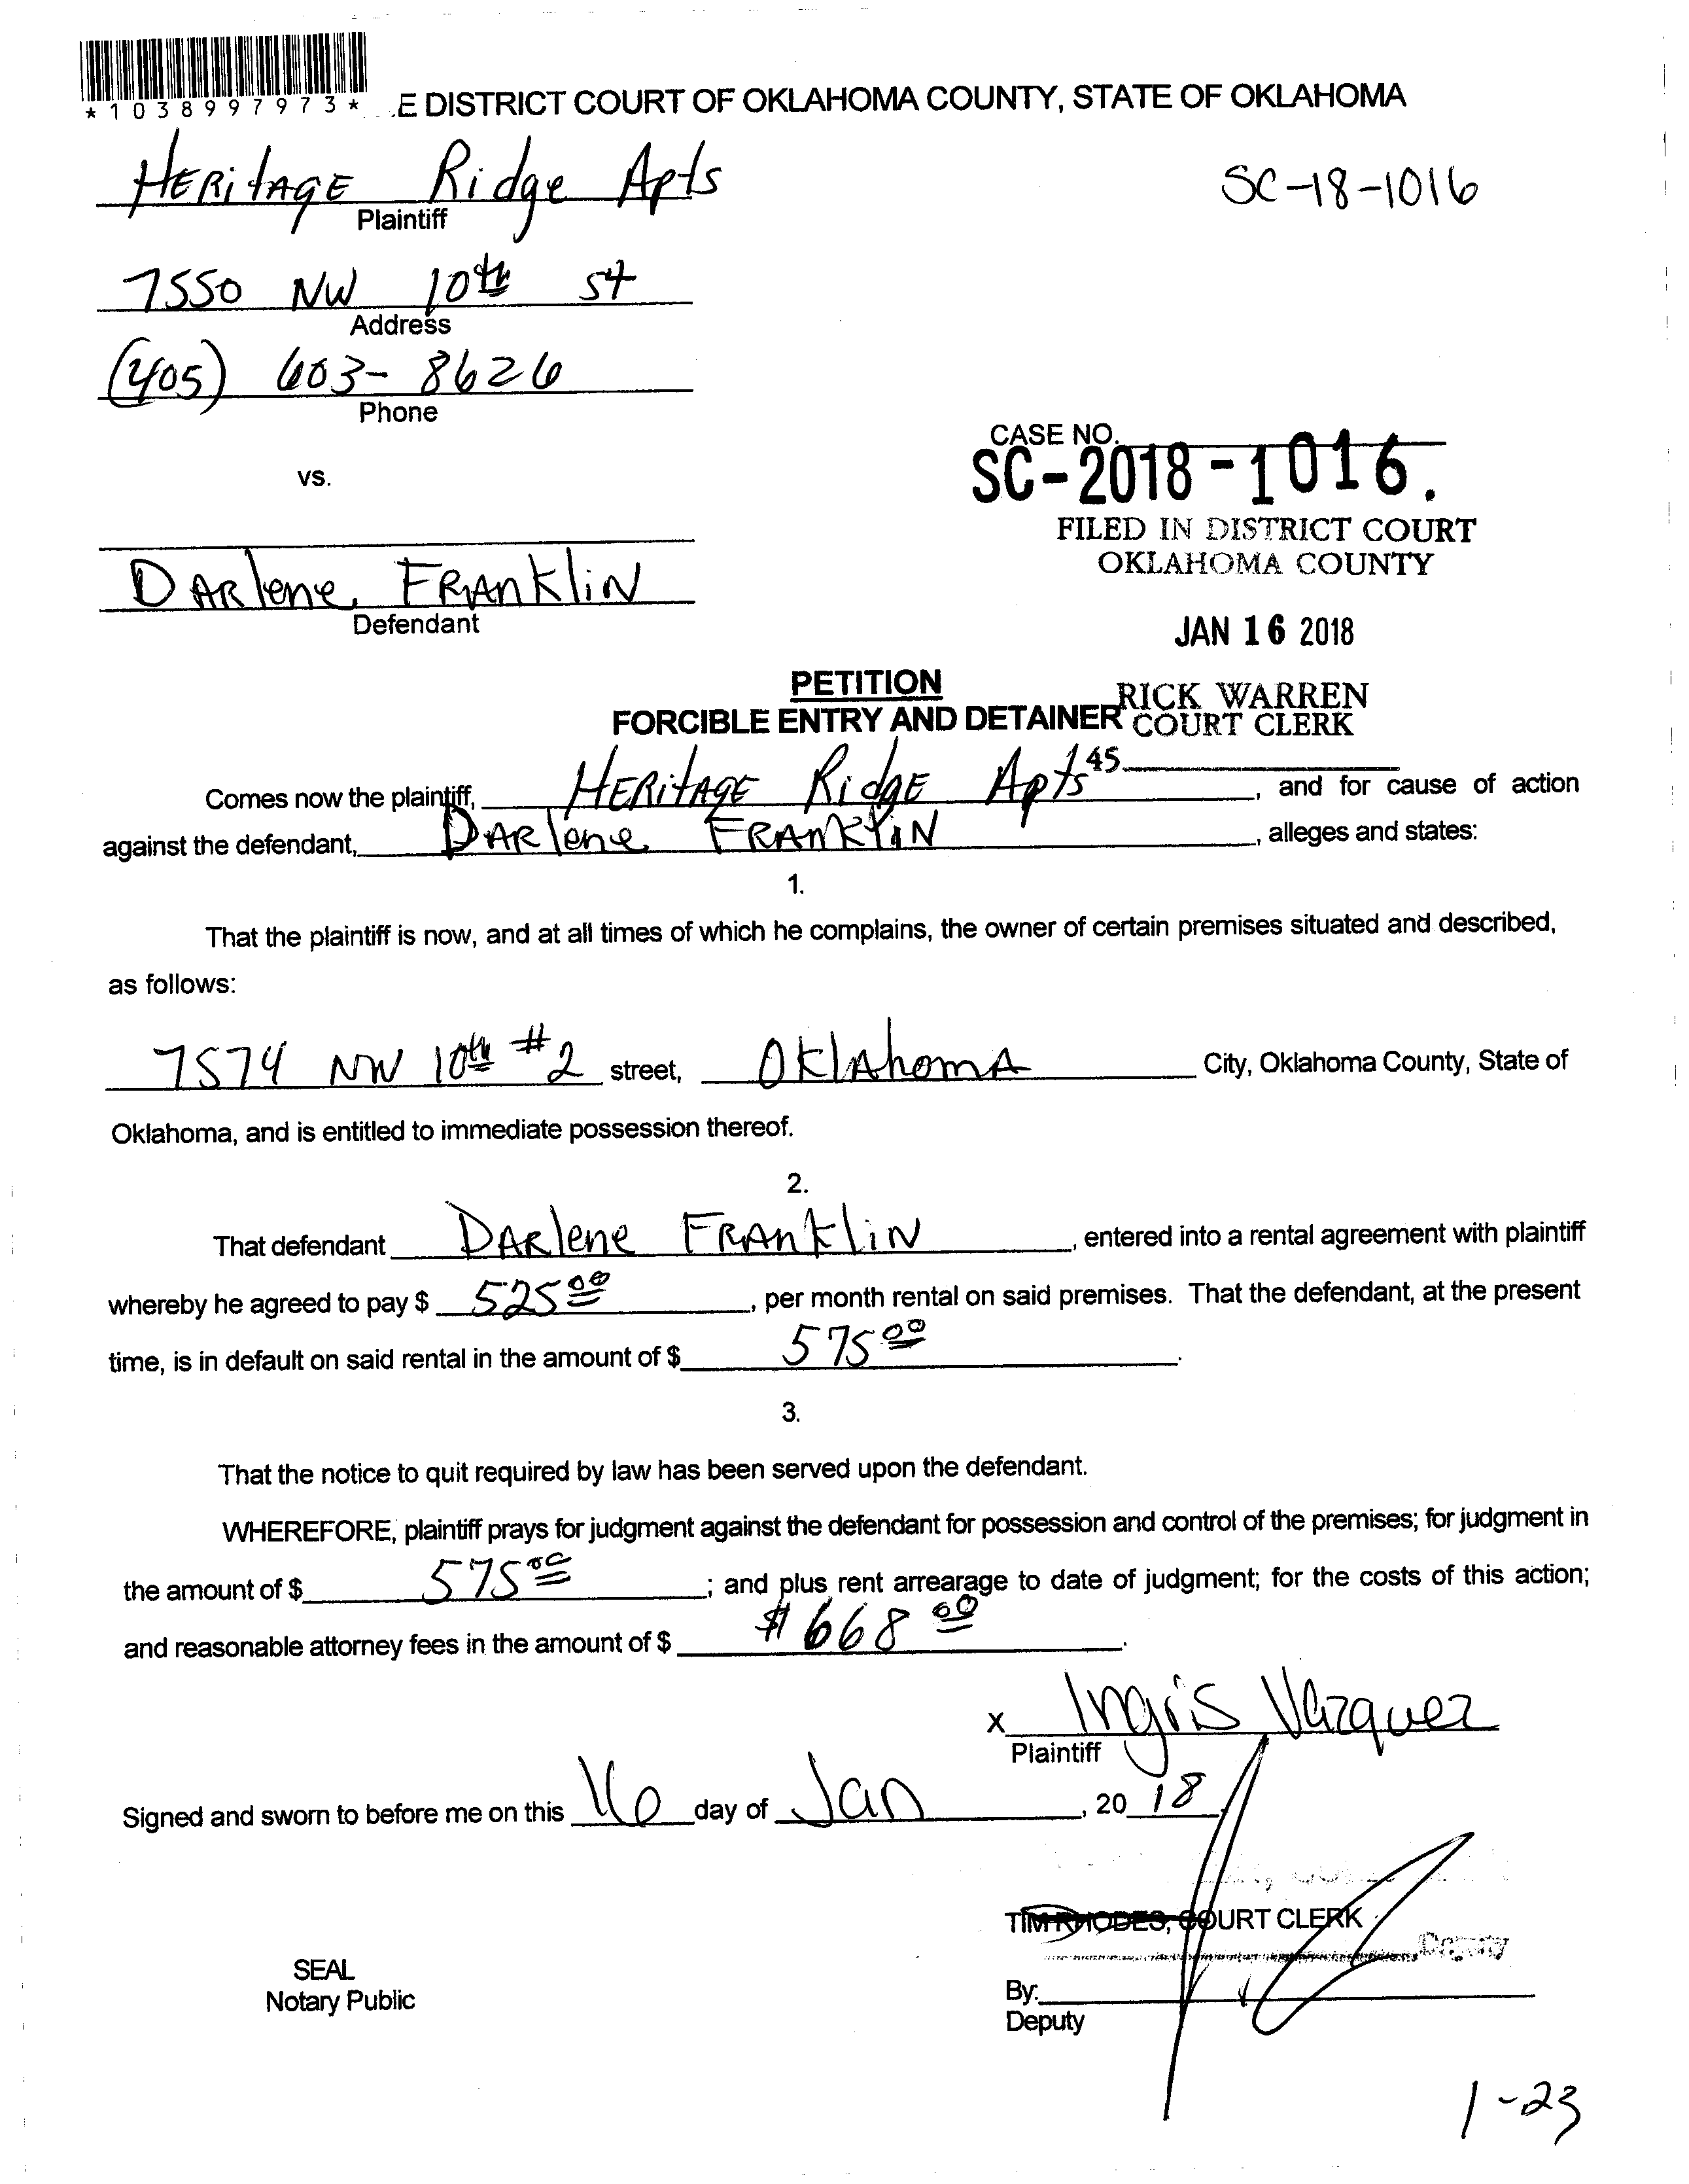 *1038997973* .E DISTRICT COURT OF OKLAHOMA COUNTY, STATE OF OKLAHOMA
HERitAGE Ridge Apts
Plaintiff
SC-18-1016
7550 NW 10th St
Address
(405) 603-8626
Phone
CASE NO.
SC-2018-1016.
vs.
FILED IN DISTRICT COURT
OKLAHOMA COUNTY
DARlene FRANkliN
Defendant
JAN 16 2018
PETITION
FORCIBLE ENTRY AND DETAINER
RICK WARREN
COURT CLERK
45
Comes now the plaintiff, HERitAGE RidgE Apts, and for cause of action
against the defendant, DARlene FRANKliN, alleges and states:
1.
That the plaintiff is now, and at all times of which he complains, the owner of certain premises situated and described,
as follows:
7574 NW 10th #2 street, OklAhomA City, Oklahoma County, State of
Oklahoma, and is entitled to immediate possession thereof.
2.
That defendant DARlene FRANkliN, entered into a rental agreement with plaintiff
whereby he agreed to pay $ 525 00, per month rental on said premises. That the defendant, at the present
time, is in default on said rental in the amount of $ 575 00.
3.
That the notice to quit required by law has been served upon the defendant.
WHEREFORE, plaintiff prays for judgment against the defendant for possession and control of the premises; for judgment in
the amount of $ 575 00; and plus rent arrearage to date of judgment; for the costs of this action;
and reasonable attorney fees in the amount of $ $668 00.
x Ingris Vazquez
Plaintiff
Signed and sworn to before me on this 16 day of Jan, 20 18
TIM RHODES, COURT CLERK
Deputy
SEAL
Notary Public
By:
Deputy
1-23